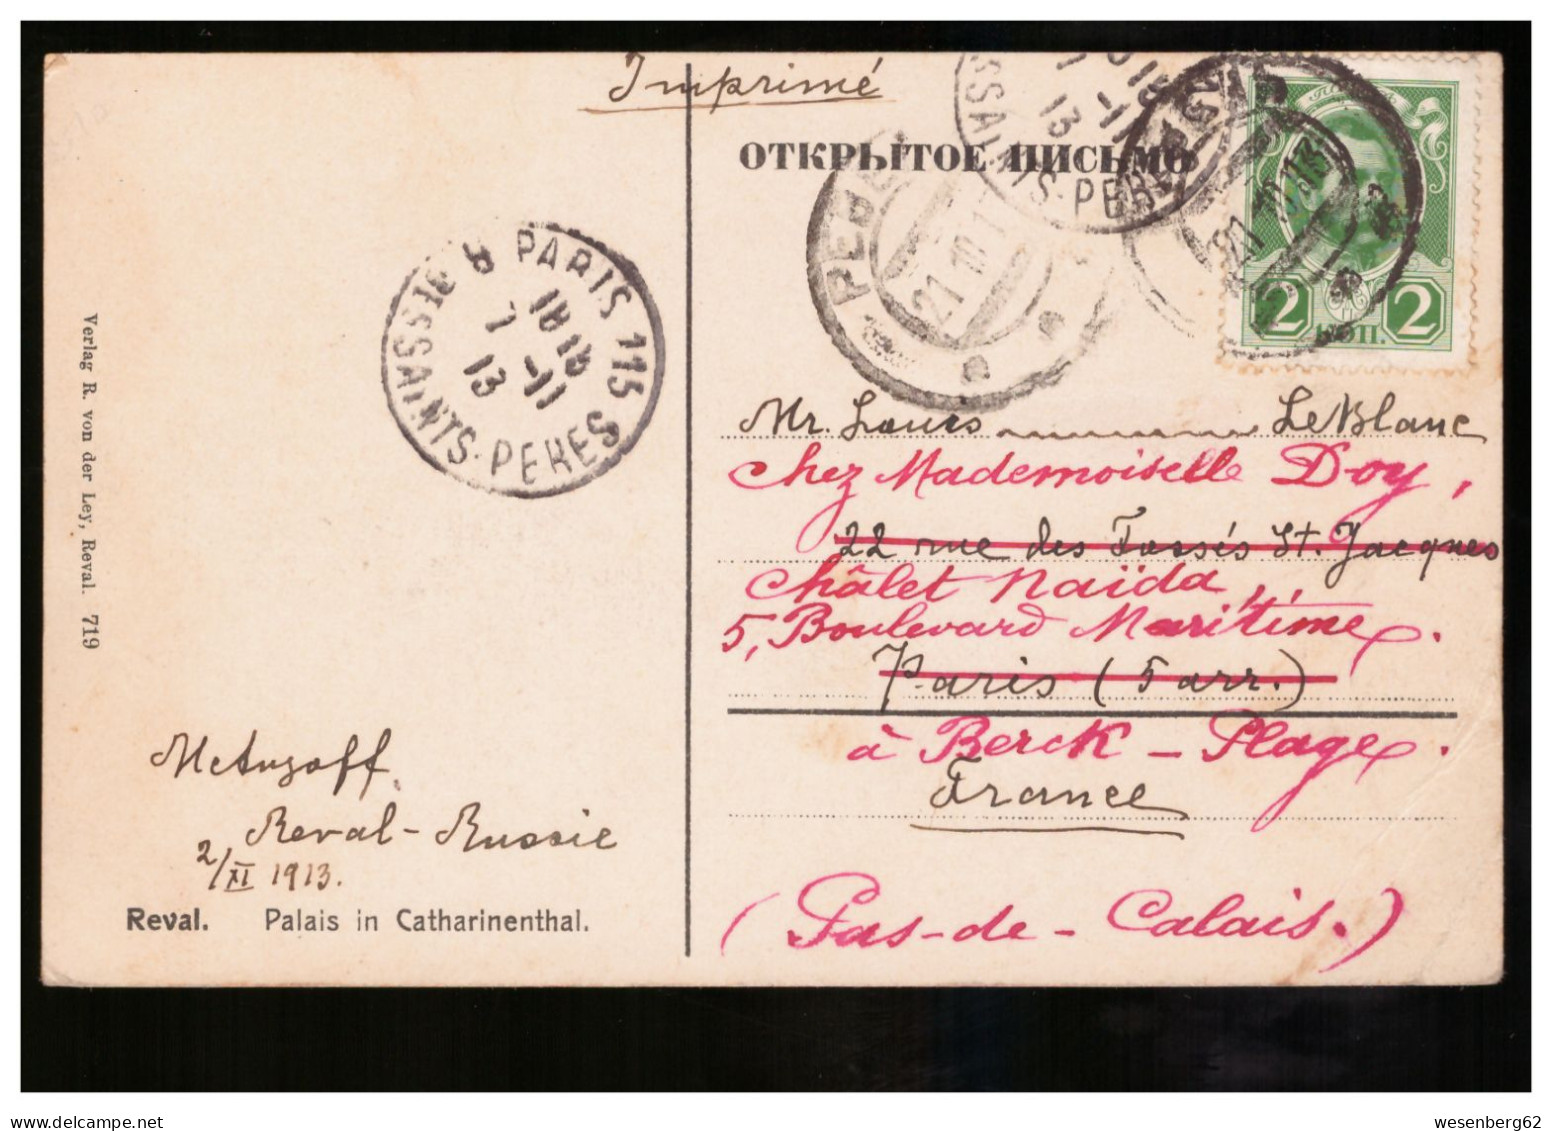 Imprimé
ОТКРЫТОЕ ПИСЬМО
РЕВЕЛЬ
21 10
PARIS 115
18 15
7 - 11
13
R DES SAINTS-PERES
2 КОП. 2
Mr. Louis LeBlanc
Chez Mademoiselle Doy,
22 rue des Fossés St. Jacques
Châlet Naïda,
5, Boulevard Maritime.
Paris (5 arr.)
à Berck - Plage.
France
(Pas-de-Calais.)
Reval - Russie
2/XI 1913.
Reval. Palais in Catharinenthal.
Verlag R. von der Ley, Reval. 719
wesenberg62